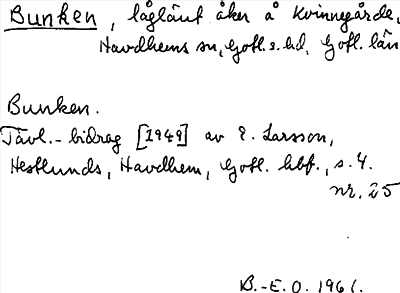 Bunken, låglänt åker å Kvinnegårde,
Havdhems sn, Gotl. s. hd, Gotl. län
Bunken.
Tävl.-bidrag [1949] av E. Larsson,
Hestlunds, Havdhem, Gotl. hbf., s. 4.
nr. 25
B.-E. O. 1961.